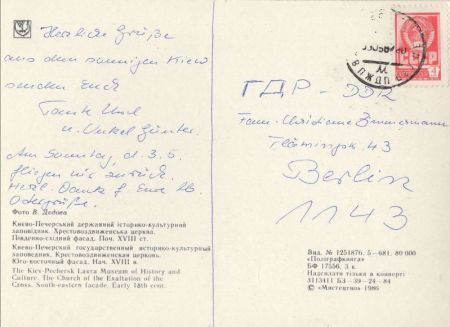 Herzliche Grüße
aus dem sonnigen Kiew
senden Euch
Tante Ursel
u. Onkel Günter.
Am Sonntag, d. 3.5.
fliegen wir zurück.
Herzl. Dank f. Eure lb.
Ostergrüße.
Фото В. Дєдова
Києво-Печерський державний історико-культурний
заповідник. Хрестовоздвиженська церква.
Південно-східний фасад. Поч. XVIII ст.
Киево-Печерский государственный историко-культурный
заповедник. Крестовоздвиженская церковь.
Юго-восточный фасад. Нач. XVIII в.
The Kiev-Pechersk Lavra Museum of History and
Culture. The Church of the Exaltation of the
Cross. South-eastern facade. Early 18th cent.
ГДР - DDR
Fam. Christiane
43
Berlin
1143
Вид. № 1251876. 5—681. 80 000
«Поліграфкнига»
БФ 17556. 3 к.
Надсилати тільки в конверті
3113411 БЗ—39—24—84
© «Мистецтво» 1986